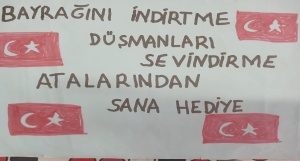 BAYRAĞINI İNDİRTME
DÜŞMANLARI
SEVİNDİRME
ATALARINDAN
SANA HEDİYE